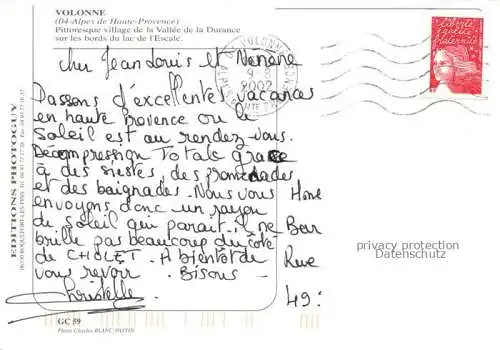 VOLONNE
(04-Alpes de Haute-Provence)
Pittoresque village de la Vallée de la Durance
sur les bords du lac de l'Escale.
Cher Jean Louis et Nanane
Passons d'excellentes vacances
en haute Provence ou le
Soleil est au rendez-vous.
Décompression Totale grace
à des siestes, des promenades
et des baignades. Nous vous
envoyons donc un rayon
du soleil qui parait-il ne
brille pas beaucoup du côté
de CHOLET. A bientôt de
vous revoir. Bisous
Christelle
Rue
49
privacy protection
Datenschutz
liberté
égalité
fraternité
VOLONNE
2002
EDITIONS PHOTOGUY
GC 59
Photo Charles BLANC-PATTIN